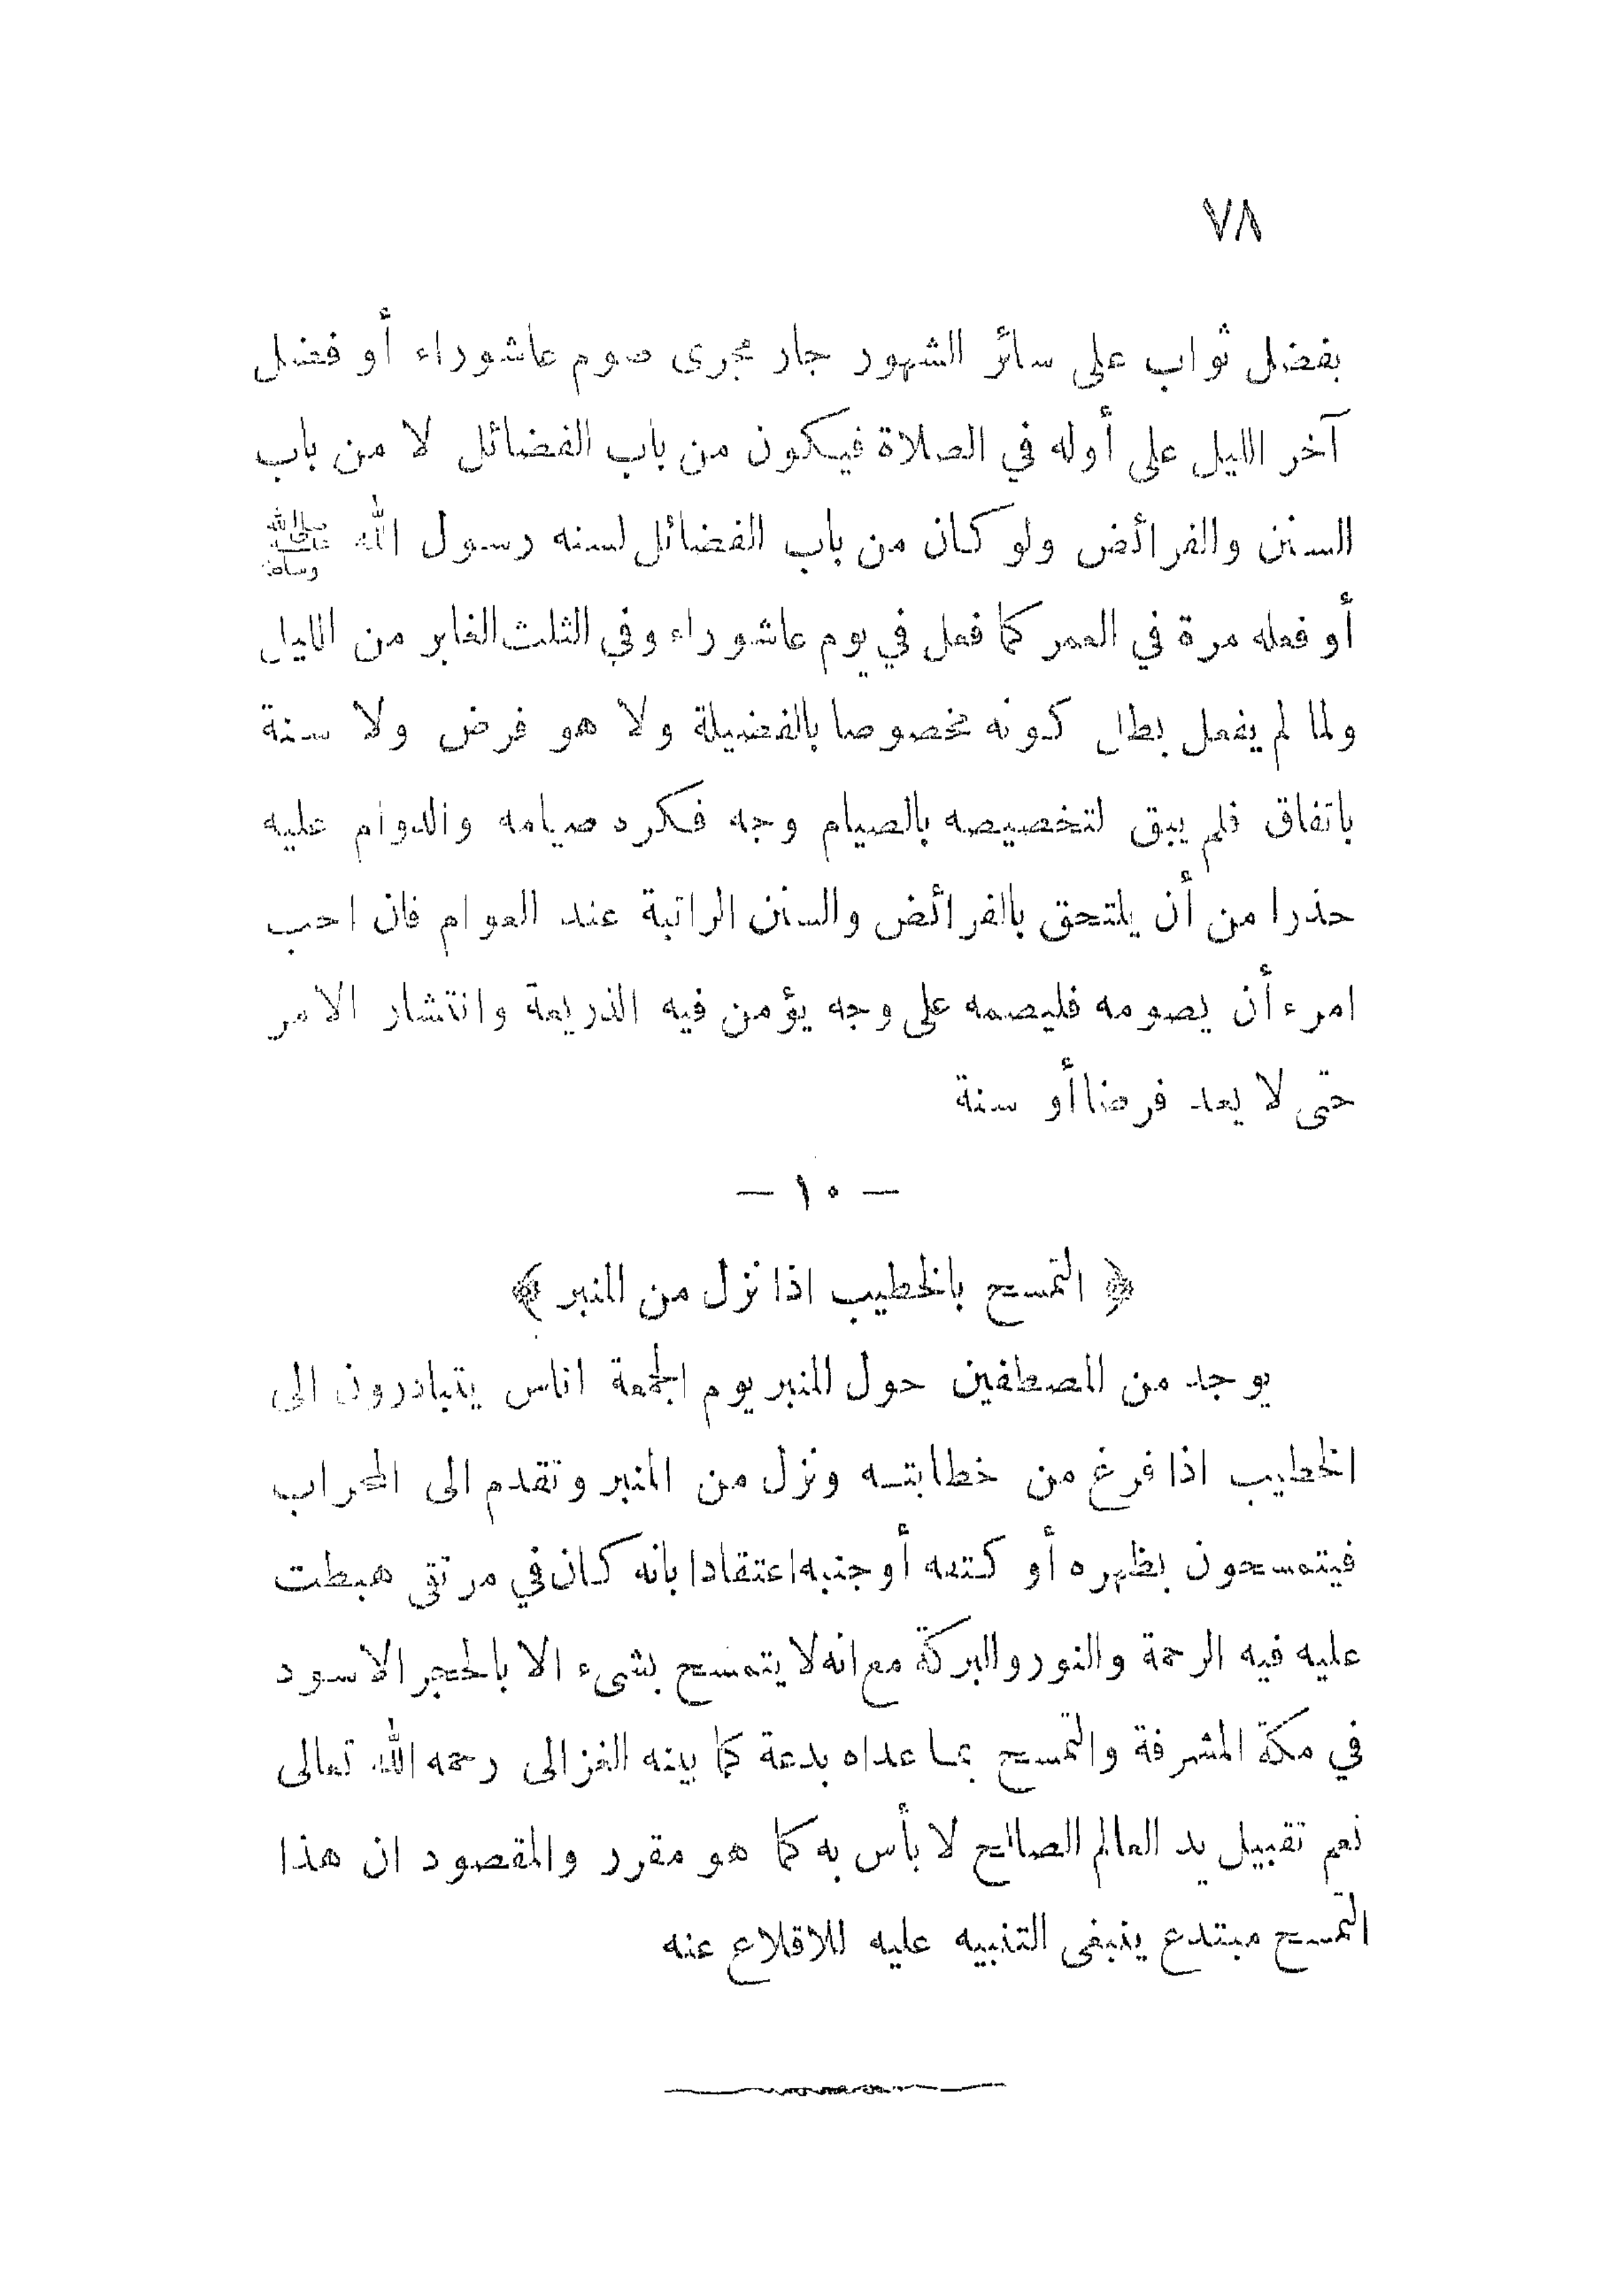 ٧٨
بفضل ثواب على سائر الشهور جار مجرى صوم عاشوراء أو فضل
آخر الليل على أوله في الصلاة فيكون من باب الفضائل لا من باب
السنن والفرائض ولو كان من باب الفضائل لسنه رسول الله ﷺ
أو فعله مرة في العمر كما فعل في يوم عاشوراء وفي الثلث الغابر من الليل
ولما لم يفعل بطل كونه مخصوصا بالفضيلة ولا هو فرض ولا سنة
باتفاق فلم يبق لتخصيصه بالصيام وجه فكره صيامه والدوام عليه
حذرا من أن يلتحق بالفرائض والسنن الراتبة عند العوام فان احب
امرء أن يصومه فليصمه على وجه يؤمن فيه الذريعة وانتشار الامر
حتى لا يعد فرضا أو سنة
— ١٠ —
﴿ التمسح بالخطيب اذا نزل من المنبر ﴾
يوجد من المصطفين حول المنبر يوم الجمعة اناس يتبادرون الى
الخطيب اذا فرغ من خطابته ونزل من المنبر وتقدم الى المحراب
فيتمسحون بظهره أو كتفه أو جنبه اعتقادا بانه كان في مرتقى هبطت
عليه فيه الرحمة والنور والبركة مع انه لا يتمسح بشىء الا بالحجر الاسود
في مكة المشرفة والتمسح بما عداه بدعة كما بينه الغزالى رحمه الله تعالى
نعم تقبيل يد العالم الصالح لا بأس به كما هو مقرر والمقصود ان هذا
التمسح مبتدع ينبغى التنبيه عليه للاقلاع عنه